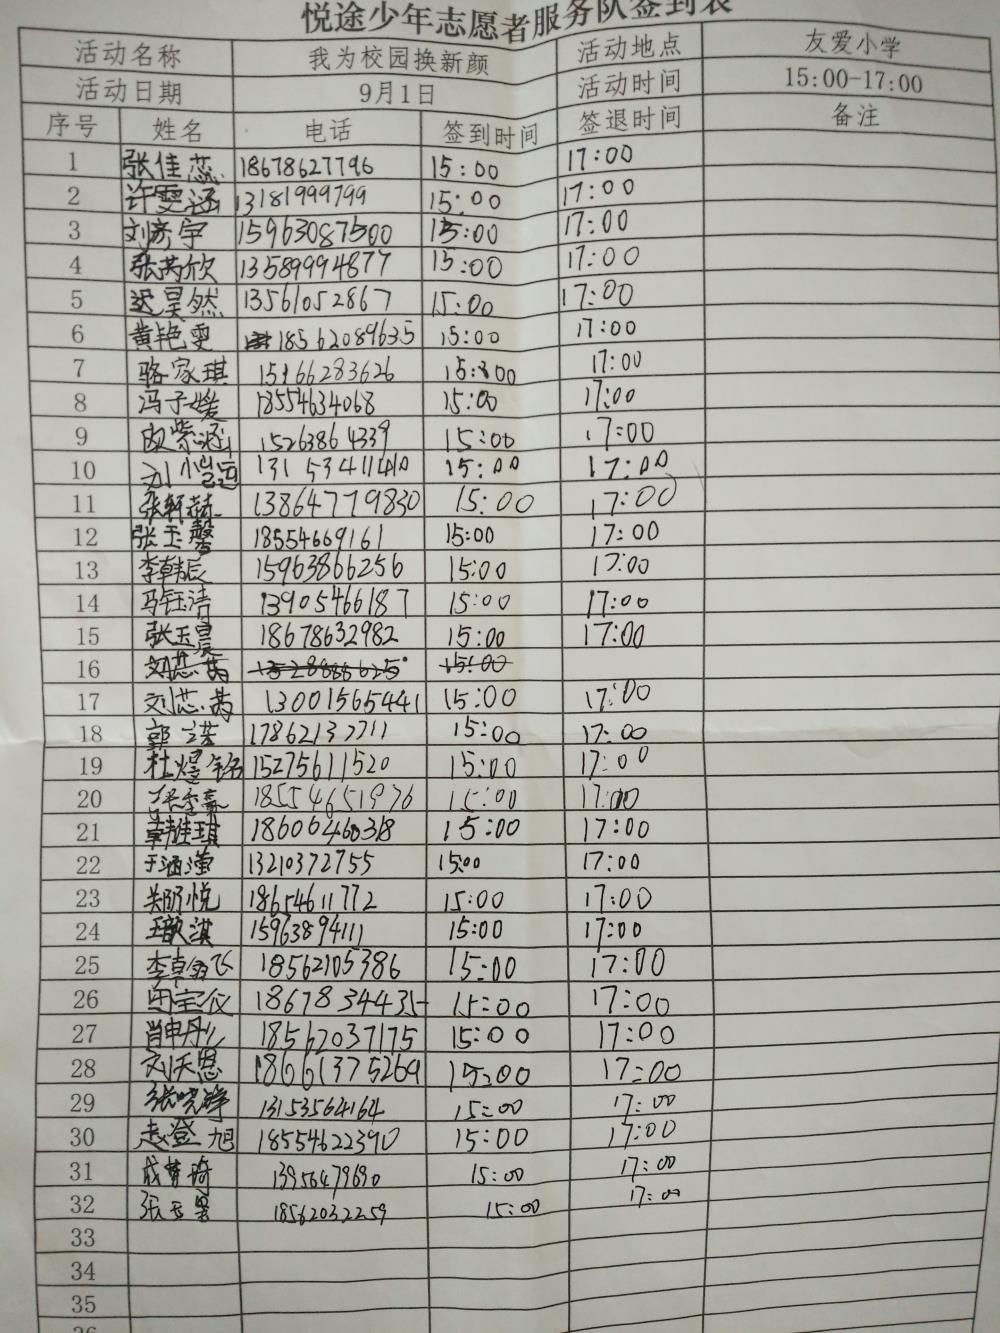 悦途少年志愿者服务队签到表
活动名称 我为校园换新颜 活动地点 友爱小学
活动日期 9月1日 活动时间 15:00-17:00
序号 姓名 电话 签到时间 签退时间 备注
1 张佳蕊 18678627796 15:00 17:00
2 许雯涵 13181999799 15:00 17:00
3 刘彦宇 15963087500 15:00 17:00
4 张芮欣 13589994877 15:00 17:00
5 迟昊然 13561052867 15:00 17:00
6 黄艳雯 18562089635 15:00 17:00
7 骆家琪 15166283626 15:00 17:00
8 冯子媛 18554634068 15:00 17:00
9 紫涵 15263864339 15:00 17:00
10 刘 15:00 17:00
11 张轩赫 13864779830 15:00 17:00
12 张玉馨 18554669161 15:00 17:00
13 李韩辰 15963866256 15:00 17:00
14 马钰洁 13905466187 15:00 17:00
15 张玉昊 18678632982 15:00 17:00
16 刘芯芮 15:00
17 刘芯芮 13001565441 15:00 17:00
18 郭 17862132711 15:00 17:00
19 杜煜铭 15275611520 15:00 17:00
20 18554651976 15:00 17:00
21 韩佳琪 18606460318 15:00 17:00
22 于涵滢 13210372755 15:00 17:00
23 悦 18654611772 15:00 17:00
24 王歆淇 15963894111 15:00 17:00
25 李卓 18562105386 15:00 17:00
26 周宝仪 1867834435 15:00 17:00
27 肖申彤 18562037175 15:00 17:00
28 刘天恩 18661375269 15:00 17:00
29 张晓峰 13153564164 15:00 17:00
30 赵登旭 18554622390 15:00 17:00
31 成梦琦 15:00 17:00
32 张玉昊 18562032259 15:00 17:00
33
34
35
36